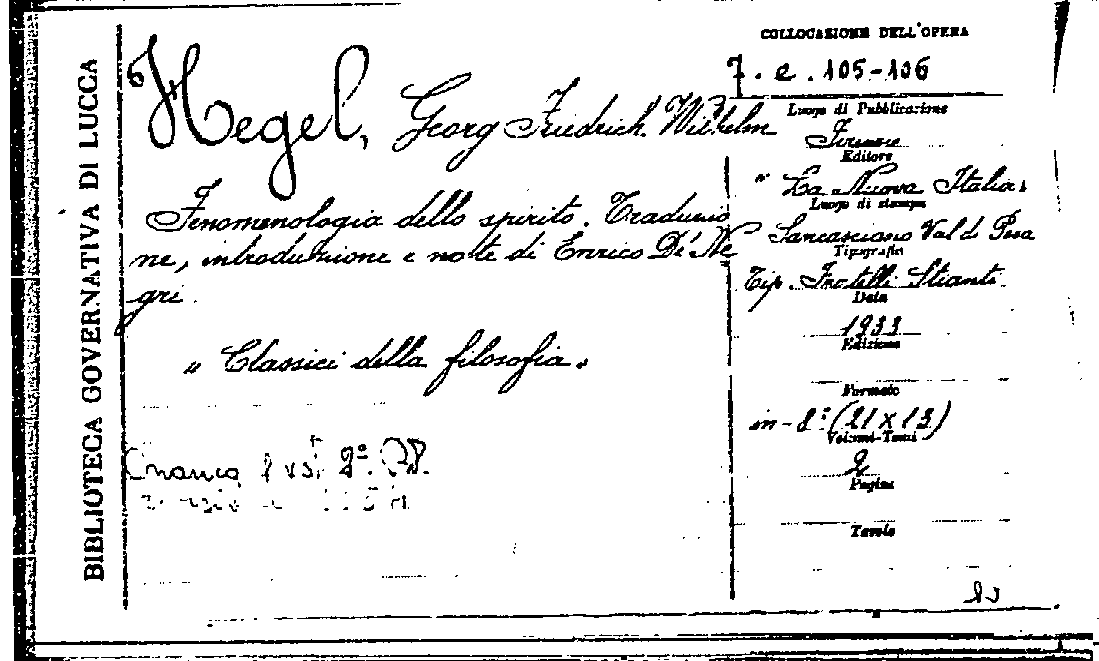 BIBLIOTECA GOVERNATIVA DI LUCCA
Hegel, Georg Friedrich Wilhelm
Fenomenologia dello spirito. Traduzio
ne, introduzione e note di Enrico De' Ne
gri.
" Classici della filosofia "
Manca 2º
COLLOCAZIONE DELL'OPERA
7. e. 105-106
Luogo di Pubblicazione
Firenze
Editore
" La Nuova Italia "
Luogo di stampa
Sancasciano Val di Pesa
Tipografia
Tip. Fratelli Stianti
Data
1933
Edizione
Formato
in-8º (21 x 13)
Volumi-Tomi
2
Pagine
Tavole